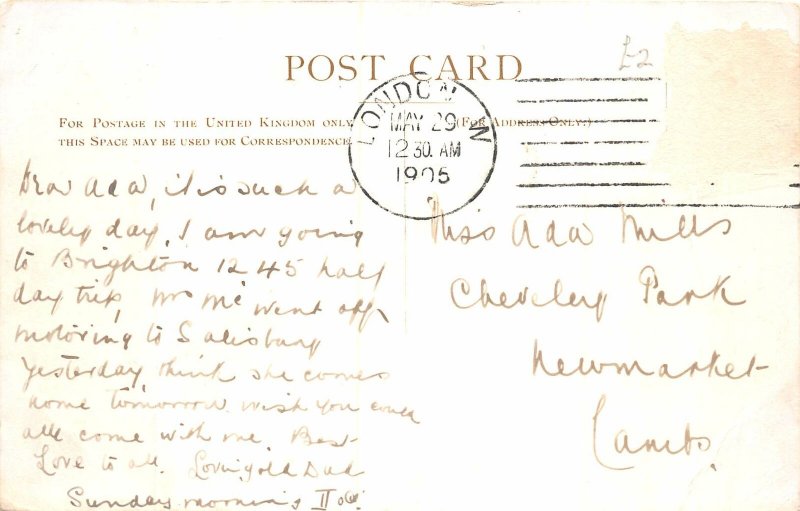 £2
POST CARD
FOR POSTAGE IN THE UNITED KINGDOM ONLY,
THIS SPACE MAY BE USED FOR CORRESPONDENCE.
(FOR ADDRESS ONLY.)
LONDON W
MAY 29
12 30 AM
1905
Dear Ada, it is such a
lovely day, I am going
to Brighton 12 45 half
day trip, Mrs Mc went off
motoring to Salisbury
yesterday, think she comes
home tomorrow wish you could
all come with me. Best
Love to all. Loving old Dad
Sunday morning
Miss Ada Mills
Cheveley Park
Newmarket
Cambs.